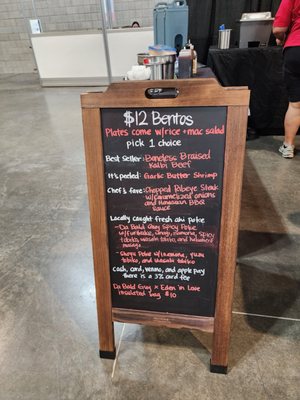 $12 Bentos
Plates come w/rice + mac salad
pick 1 choice
Best Seller: Boneless Braised
Kalbi Beef
It's peeled: Garlic Butter Shrimp
Chef's Fave: Chopped Ribeye Steak
w/caramelized onions
and Hawaiian BBQ
Sauce
Locally caught fresh ahi poke
- Da Bald Guy Spicy Poke
w/furikake, unagi, spicy
tobiko, wasabi tobiko, and habanero
masago
- Shoyu Poke w/ yuzu
tobiko, and wasabi tobiko
Cash, card, venmo, and apple pay
there is a 3% card fee
Da Bald Guy x Eden in Love
insulated bag $10